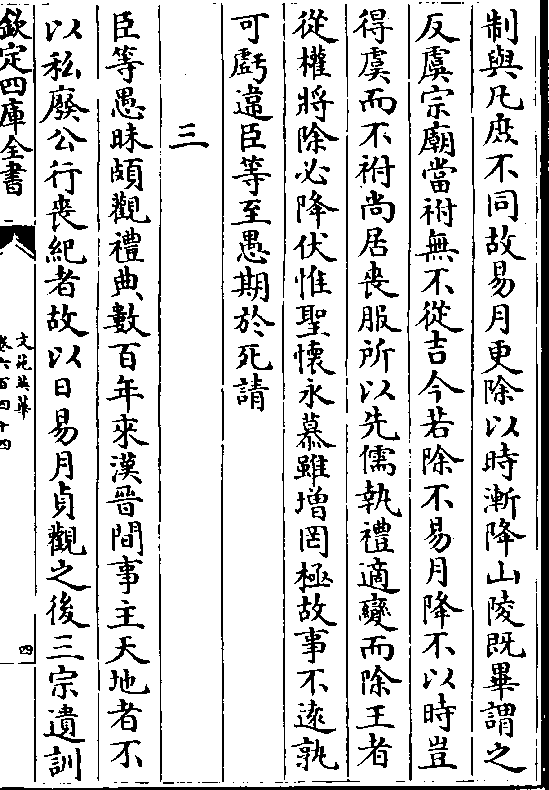 制與凡庶不同故易月更除以時漸降山陵既畢謂之
反虞宗廟當祔無不從吉今若除不易月降不以時豈
得虞而不祔尚居喪服所以先儒執禮適變而除王者
從權將除必降伏惟聖懷永慕雖增罔極故事不逺孰
可虧違臣等至愚期於死請
三
臣等愚昧頗觀禮典數百年來漢晉間事主天地者不
以私廢公行喪紀者故以日易月貞觀之後三宗遺訓
欽定四庫全書
文苑英華
卷六百四十四
四